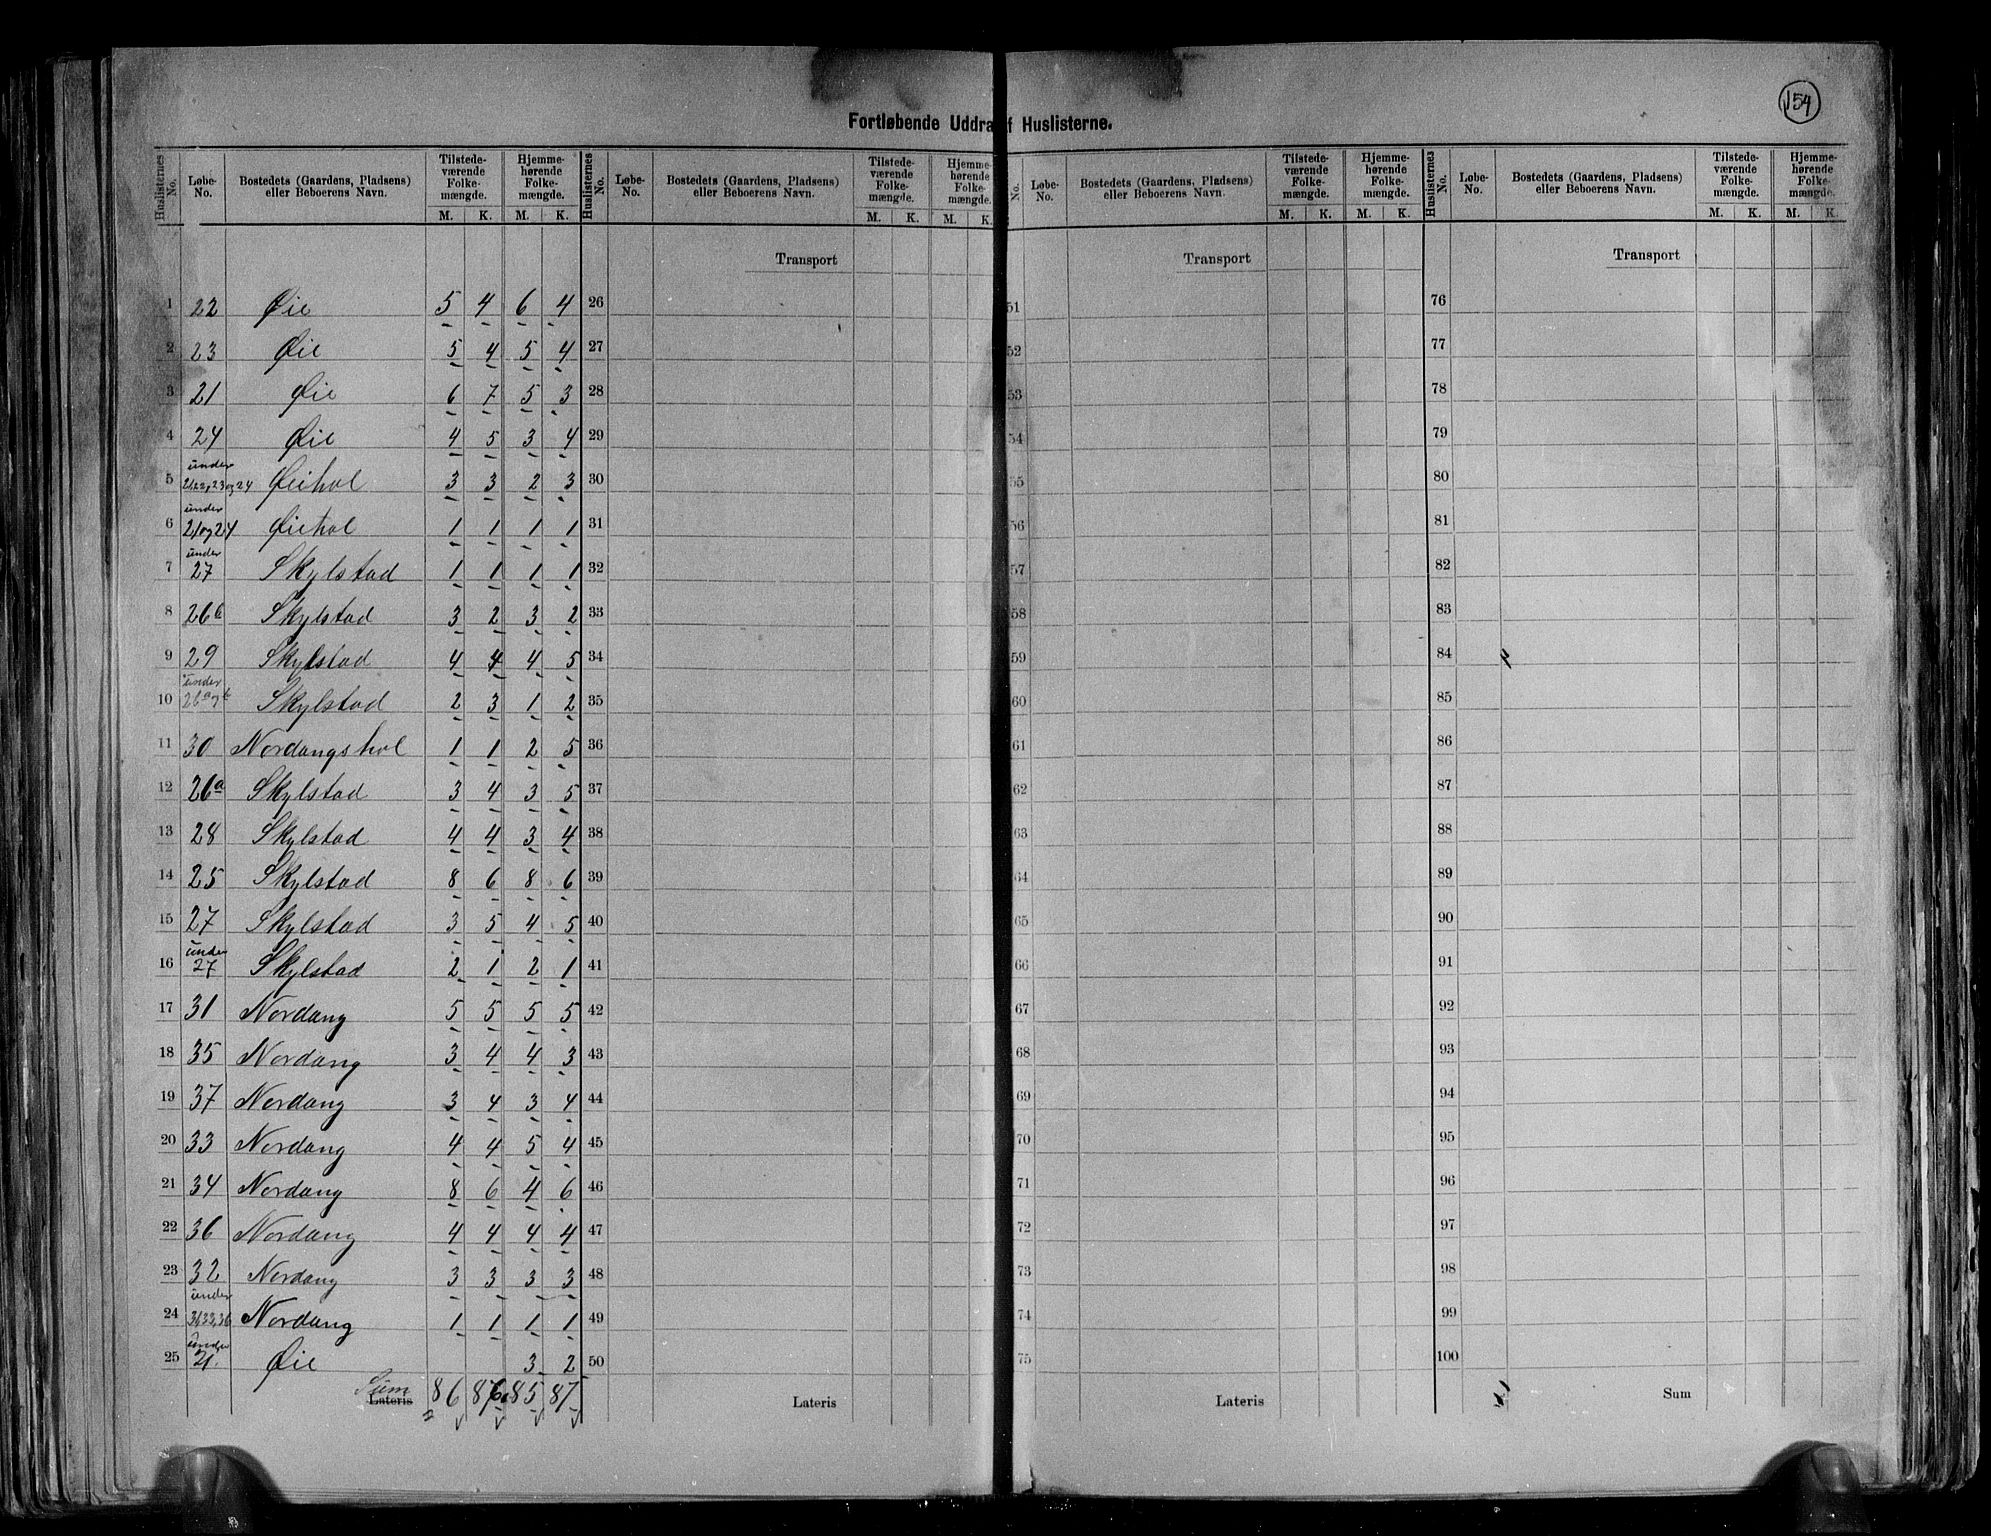 154
Fortløbende Uddra f Huslisterne.
Huslisternes No. | Løbe-No. | Bostedets (Gaardens, Pladsens) eller Beboerens Navn. | Tilstedeværende Folkemængde. M. K. | Hjemmehørende Folkemængde. M. K. | Huslisternes No. | Løbe-No. | Bostedets (Gaardens, Pladsens) eller Beboerens Navn. | Tilstedeværende Folkemængde. M. K. | Hjemmehørende Folkemængde. M. K. | No. | Løbe-No. | Bostedets (Gaardens, Pladsens) eller Beboerens Navn. | Tilstedeværende Folkemængde. M. K. | Hjemmehørende Folkemængde. M. K. | Huslisternes No. | Løbe-No. | Bostedets (Gaardens, Pladsens) eller Beboerens Navn. | Tilstedeværende Folkemængde. M. K. | Hjemmehørende Folkemængde. M. K.
Transport Transport Transport
1 22 Øie 5 4 6 4 26 51 76
2 23 Øie 5 4 5 4 27 52 77
3 21 Øie 6 7 5 3 28 53 78
4 24 Øie 4 5 3 4 29 54 79
5 under 21,22,23 og 24 Øiehol 3 3 2 3 30 55 80
6 under 21 og 24 Øiehol 1 1 1 1 31 56 81
7 under 27 Skylstad 1 1 1 1 32 57 82
8 26b Skylstad 3 2 3 2 33 58 83
9 29 Skylstad 4 4 4 5 34 59 84
10 under 26a og b Skylstad 2 3 1 2 35 60 85
11 30 Nordangshol 1 1 2 5 36 61 86
12 26a Skylstad 3 4 3 5 37 62 87
13 28 Skylstad 4 4 3 4 38 63 88
14 25 Skylstad 8 6 8 6 39 64 89
15 27 Skylstad 3 5 4 5 40 65 90
16 under 27 Skylstad 2 1 2 1 41 66 91
17 31 Nordang 5 5 5 5 42 67 92
18 35 Nordang 3 4 4 3 43 68 93
19 37 Nordang 3 4 3 4 44 69 94
20 33 Nordang 4 4 5 4 45 70 95
21 34 Nordang 8 6 4 6 46 71 96
22 36 Nordang 4 4 4 4 47 72 97
23 32 Nordang 3 3 3 3 48 73 98
24 under 31,33,36 Nordang 1 1 1 1 49 74 99
25 under 21. Øie 3 2 50 75 100
Sum Lateris 86 86 85 87 Lateris Lateris Sum